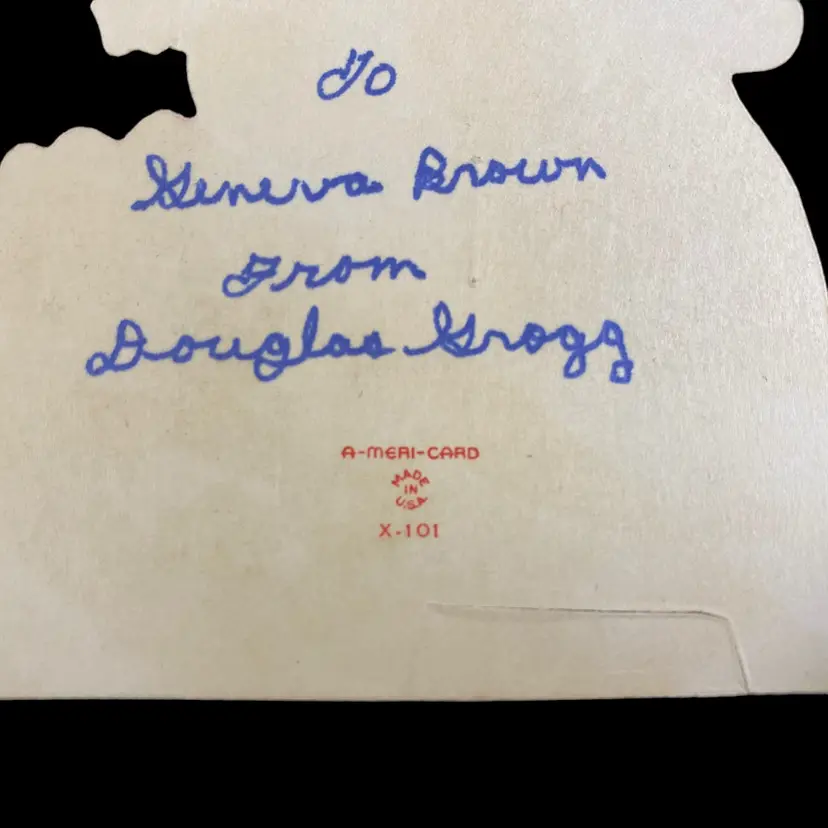 To
Geneva Brown
From
Douglas Grogg
A-MERI-CARD
MADE
IN
U.S.A.
X-101